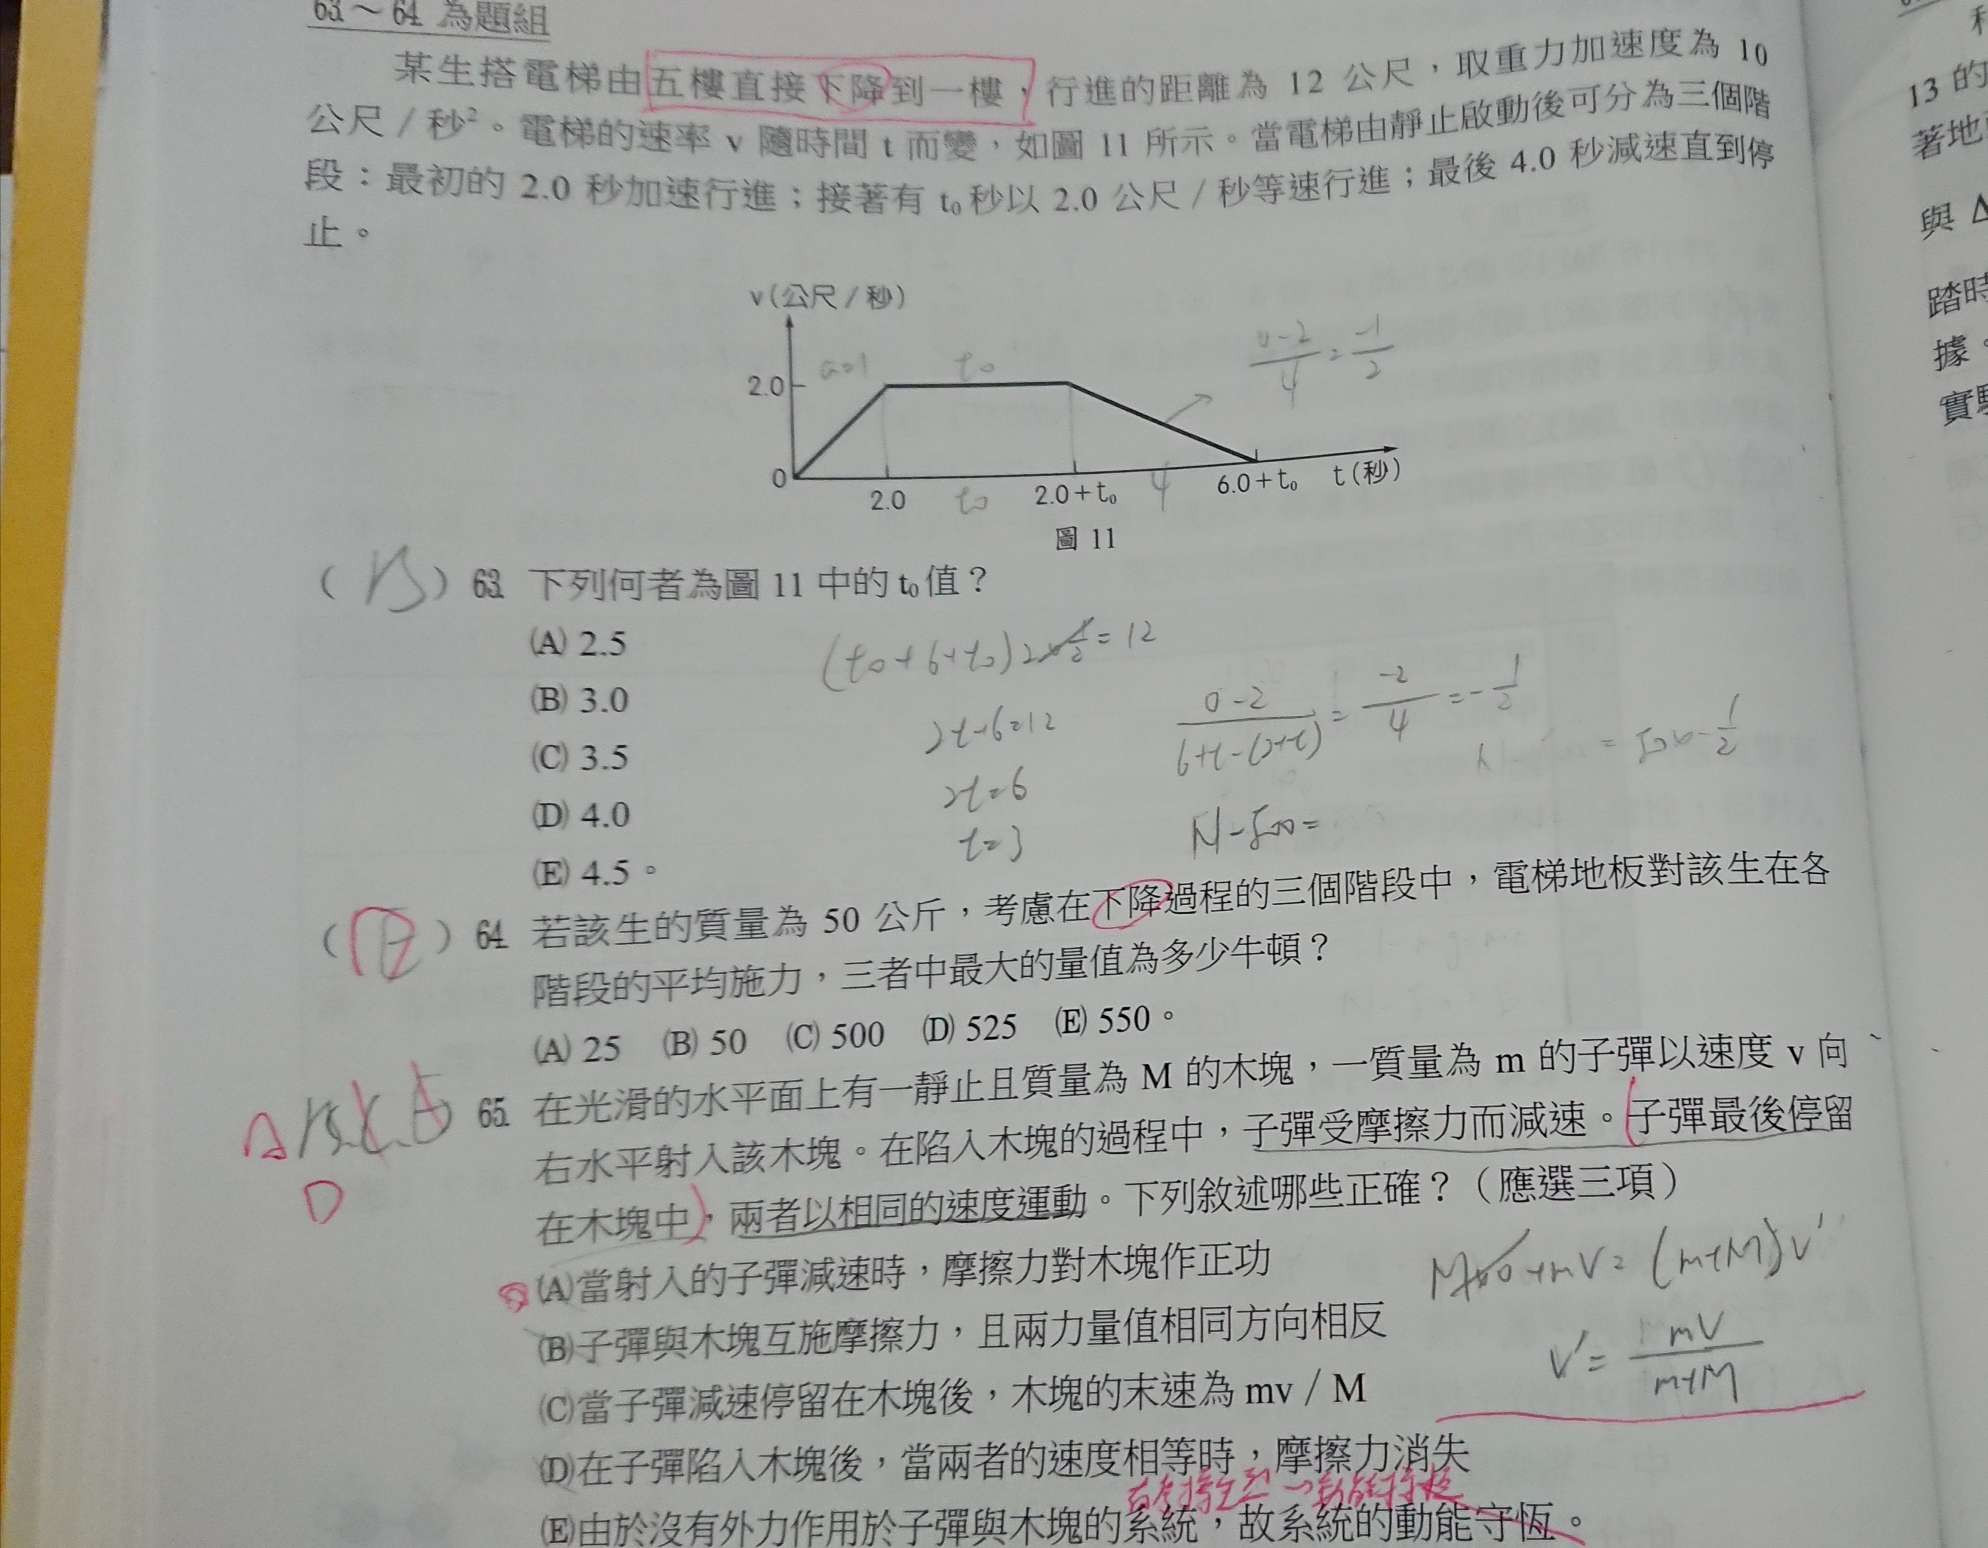 63～64 為題組
某生搭電梯由五樓直接下降到一樓，行進的距離為 12 公尺，取重力加速度為 10
公尺／秒²。電梯的速率 v 隨時間 t 而變，如圖 11 所示。當電梯由靜止啟動後可分為三個階
段：最初的 2.0 秒加速行進；接著有 t₀ 秒以 2.0 公尺／秒等速行進；最後 4.0 秒減速直到停
止。
v(公尺／秒)
2.0
a=1
t₀
0-2/4=-1/2
0
2.0
t₀
2.0+t₀
4
6.0+t₀
t(秒)
圖 11
(B) 63. 下列何者為圖 11 中的 t₀ 值？
(A) 2.5
(B) 3.0
(C) 3.5
(D) 4.0
(E) 4.5。
(t₀+6+t₀)2×1/2=12
2t+6=12
2t=6
t=3
0-2/6+t-(2+t)=-2/4=-1/2
=50×-1/2
N-500=
(E) 64. 若該生的質量為 50 公斤，考慮在下降過程的三個階段中，電梯地板對該生在各
階段的平均施力，三者中最大的量值為多少牛頓？
(A) 25 (B) 50 (C) 500 (D) 525 (E) 550。
A D
65. 在光滑的水平面上有一靜止且質量為 M 的木塊，一質量為 m 的子彈以速度 v 向
右水平射入該木塊。在陷入木塊的過程中，子彈受摩擦力而減速。子彈最後停留
在木塊中，兩者以相同的速度運動。下列敘述哪些正確？（應選三項）
(A)當射入的子彈減速時，摩擦力對木塊作正功
(B)子彈與木塊互施摩擦力，且兩力量值相同方向相反
(C)當子彈減速停留在木塊後，木塊的末速為 mv／M
(D)在子彈陷入木塊後，當兩者的速度相等時，摩擦力消失
(E)由於沒有外力作用於子彈與木塊的系統，故系統的動能守恆。
M×0+mV=(m+M)V'
V'=mV/m+M
13 的
著地
與 Δ
踏時
據。